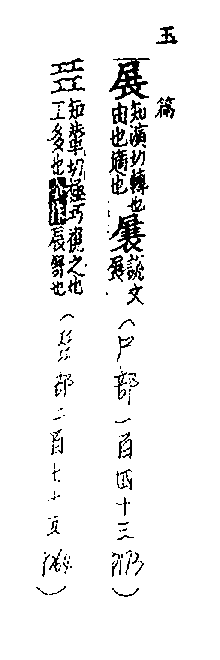 玉篇
展知演切轉也由也適也㞡說文展
㠭知輦切極巧視之也工多也今作展
(尸部一百四十三)
(㠭部二百七十五頁)